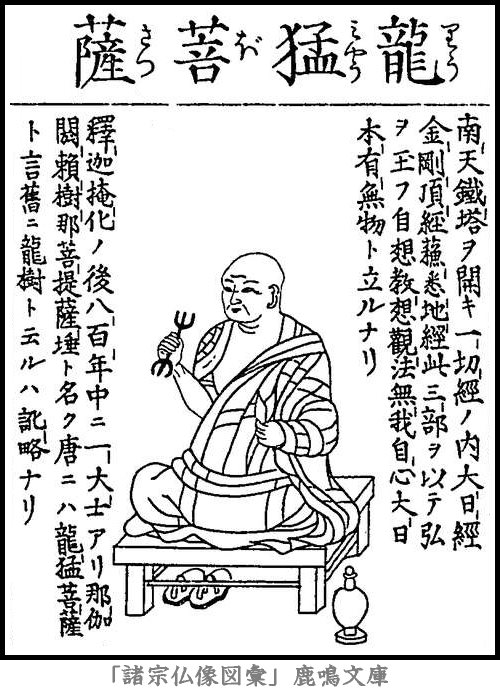 龍猛菩薩
りうみやうぼさつ
南天鐵塔ヲ開キ一切經ノ内大日經
金剛頂經蘓悉地經此三部ヲ以テ弘
ヲ玉フ自想教想觀法無我自心大日
本有無物ト立ルナリ
釋迦掩化ノ後八百年中ニ一大士アリ那伽
閼賴樹那菩提薩埵ト名ク唐ニハ龍猛菩薩
ト言舊ニ龍樹ト云ルハ訛略ナリ
「諸宗仏像図彙」鹿鳴文庫